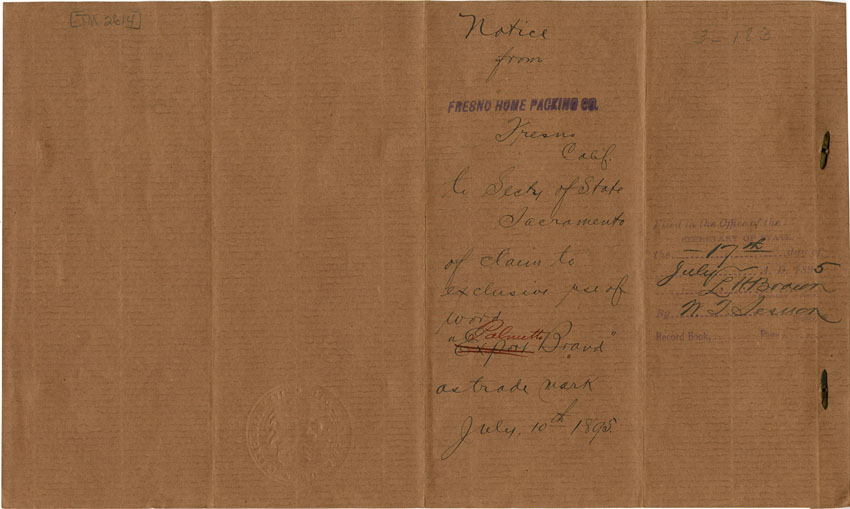 [TM 2614]
Notice
from
FRESNO HOME PACKING CO.
Fresno
Calif.
to Secty of State
Sacramento
of claim to
exclusive use of
word
"Palmetto Brand"
as trade mark
July, 10th 1895.
3-183
Filed in the Office of the
SECRETARY OF STATE,
the 17th day of
July A. D. 1895
L. H. Brown
By
Record Book, Page